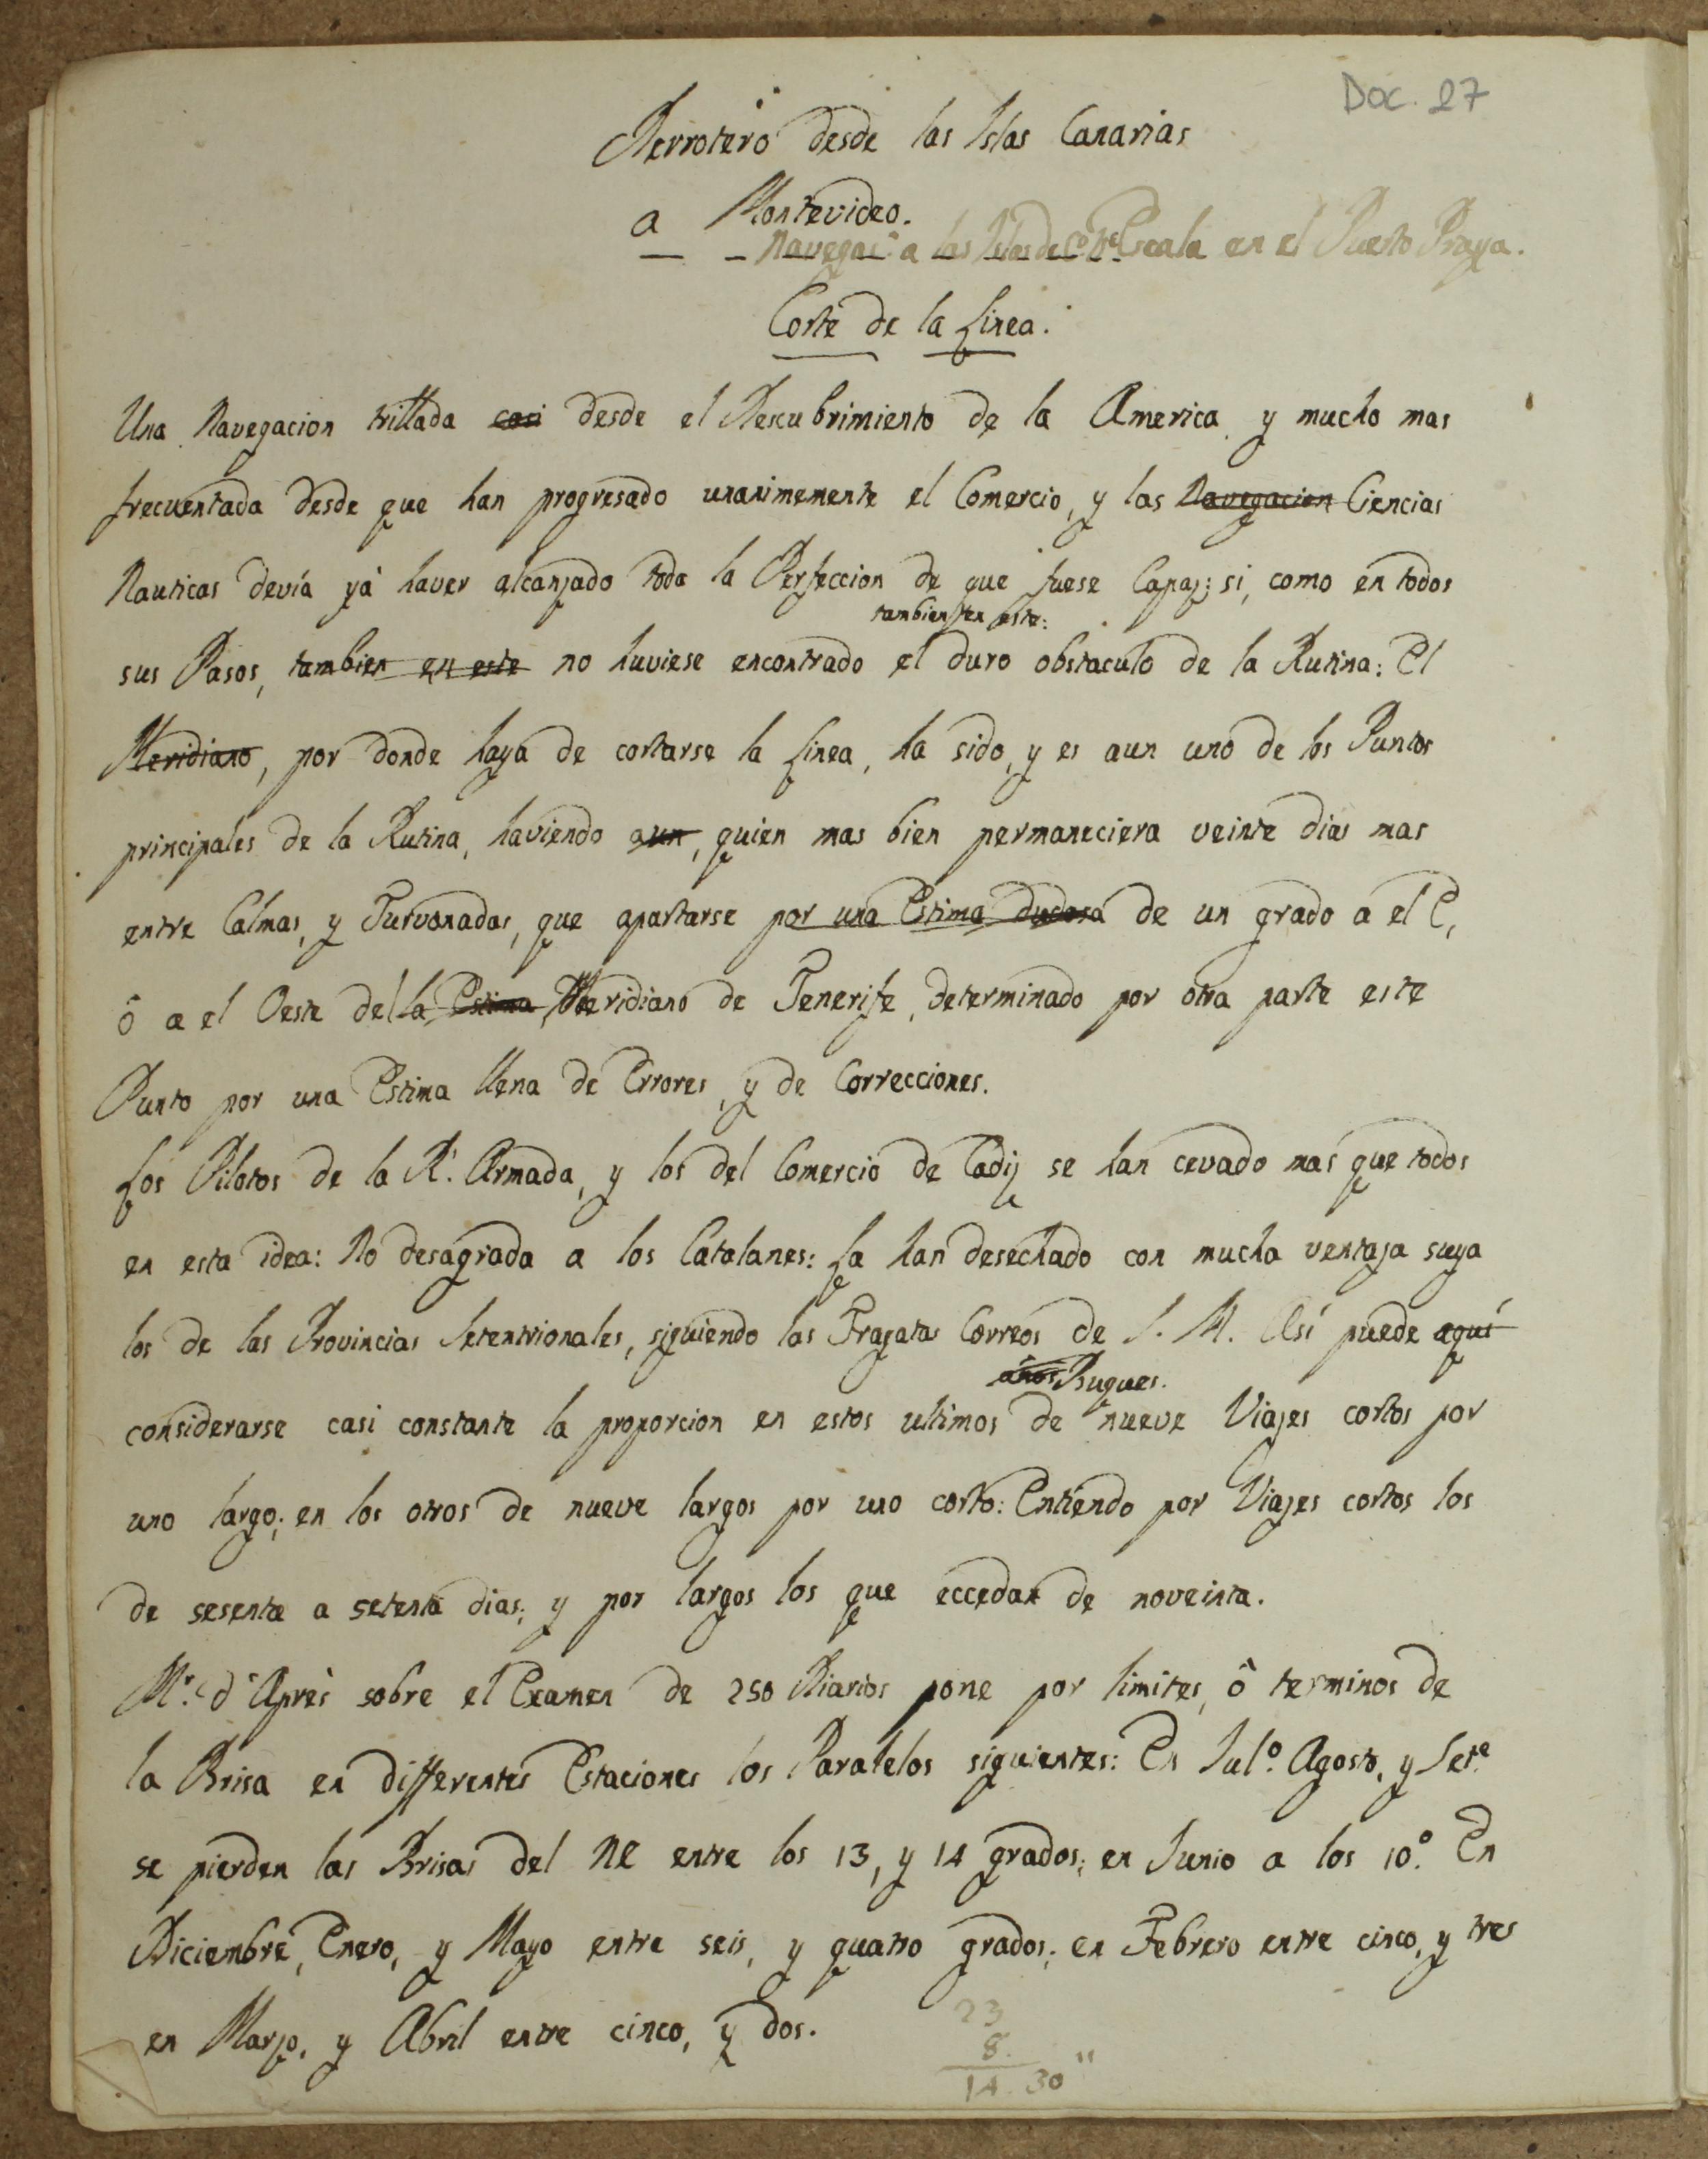 Doc. 27
Derrotero desde las Islas Canarias
a Montevideo.
Navegacn. a las Islas de Escala en el Puerto Praya.
Corte de la Linea.
Una Navegacion trillada casi desde el Descubrimiento de la America y mucho mas
frecuentada desde que han progresado unanimemente el Comercio, y las Navegacion Ciencias
Nauticas devía yá haver alcanzado toda la Perfeccion de que fuese Capaz; si, como en todos
tambien en este:
sus Pasos, tambien en este no huviese encontrado el duro obstaculo de la Rutina: El
Meridiano, por donde haya de cortarse la Linea, ha sido, y es aun uno de los Puntos
principales de la Rutina, haviendo aun, quien mas bien permaneciera veinte dias mas
entre Calmas, y Turvonadas, que apartarse por una Estima dudosa de un grado a el E,
ô a el Oeste del la Estima Meridiano de Tenerife, determinado por otra parte este
Punto por una Estima llena de Errores, y de Correcciones.
Los Pilotos de la Rl. Armada, y los del Comercio de Cadiz se han cevado mas que todos
en esta idea: No desagrada a los Catalanes: La han desechado con mucha ventaja suya
los de las Provincias Setentrionales, siguiendo las Fragatas Correos de S. M. Así puede aquí
años Buques.
considerarse casi constante la proporcion en estos ultimos de nueve Viajes cortos por
uno largo; en los otros de nueve largos por uno corto: Entiendo por Viajes cortos los
de sesenta a setenta dias; y por largos los que eccedan de noveinta.
Mr. d'Aprés sobre el Examen de 250 Diarios pone por limites, ô terminos de
la Brisa en differentes Estaciones los Paralelos siguientes: En Julo. Agosto, y Sete.
se pierden las Brisas del NE entre los 13, y 14 grados; en Junio a los 10°. En
Diciembre, Enero, y Mayo entre seis, y quatro grados; en Febrero entre cinco, y tres
en Marzo, y Abril entre cinco, y dos.
23
8.
14. 30"